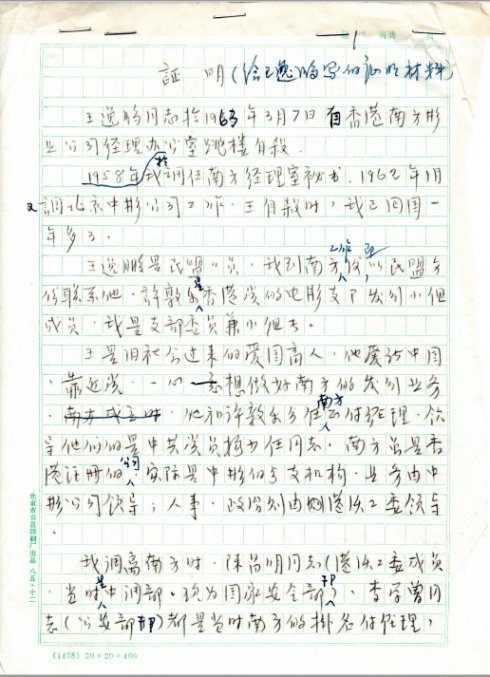 証明(给王逸鹏写的证明材料)
王逸鹏同志於1963年3月7日自香港南方影
业公司经理办公室跳楼自殺.
1958年我調任南方经理室秘书.1962年1月
又調北京中影公司工作.王自殺时,我已回国一
年多了.
王逸鹏是民盟盟员,我到南方工作后以民盟
份联系他.許敦乐是香港党的电影支下发行小组
成员.我是支部委员兼小组长.
王是旧社会过来的爱国商人.他爱护中国
.靠近党.一心想做好南方的发行业务
.他和許敦乐分任南方正付经理.领
导他们的是中共党员 任同志.南方虽是香
港註册的公司,实际是中影的分支机构.业务由中
影公司领导;人事、政治则由港澳工委领导
.
我调离南方时.陈昌明同志(港澳工委成员
.当时是中调部.现为国家安全部 ).李 曾同
志(公安部 )都是当时南方的掛名付经理,
北京市宣昌印刷厂出品 八五·十二
(1438) 20×20=400